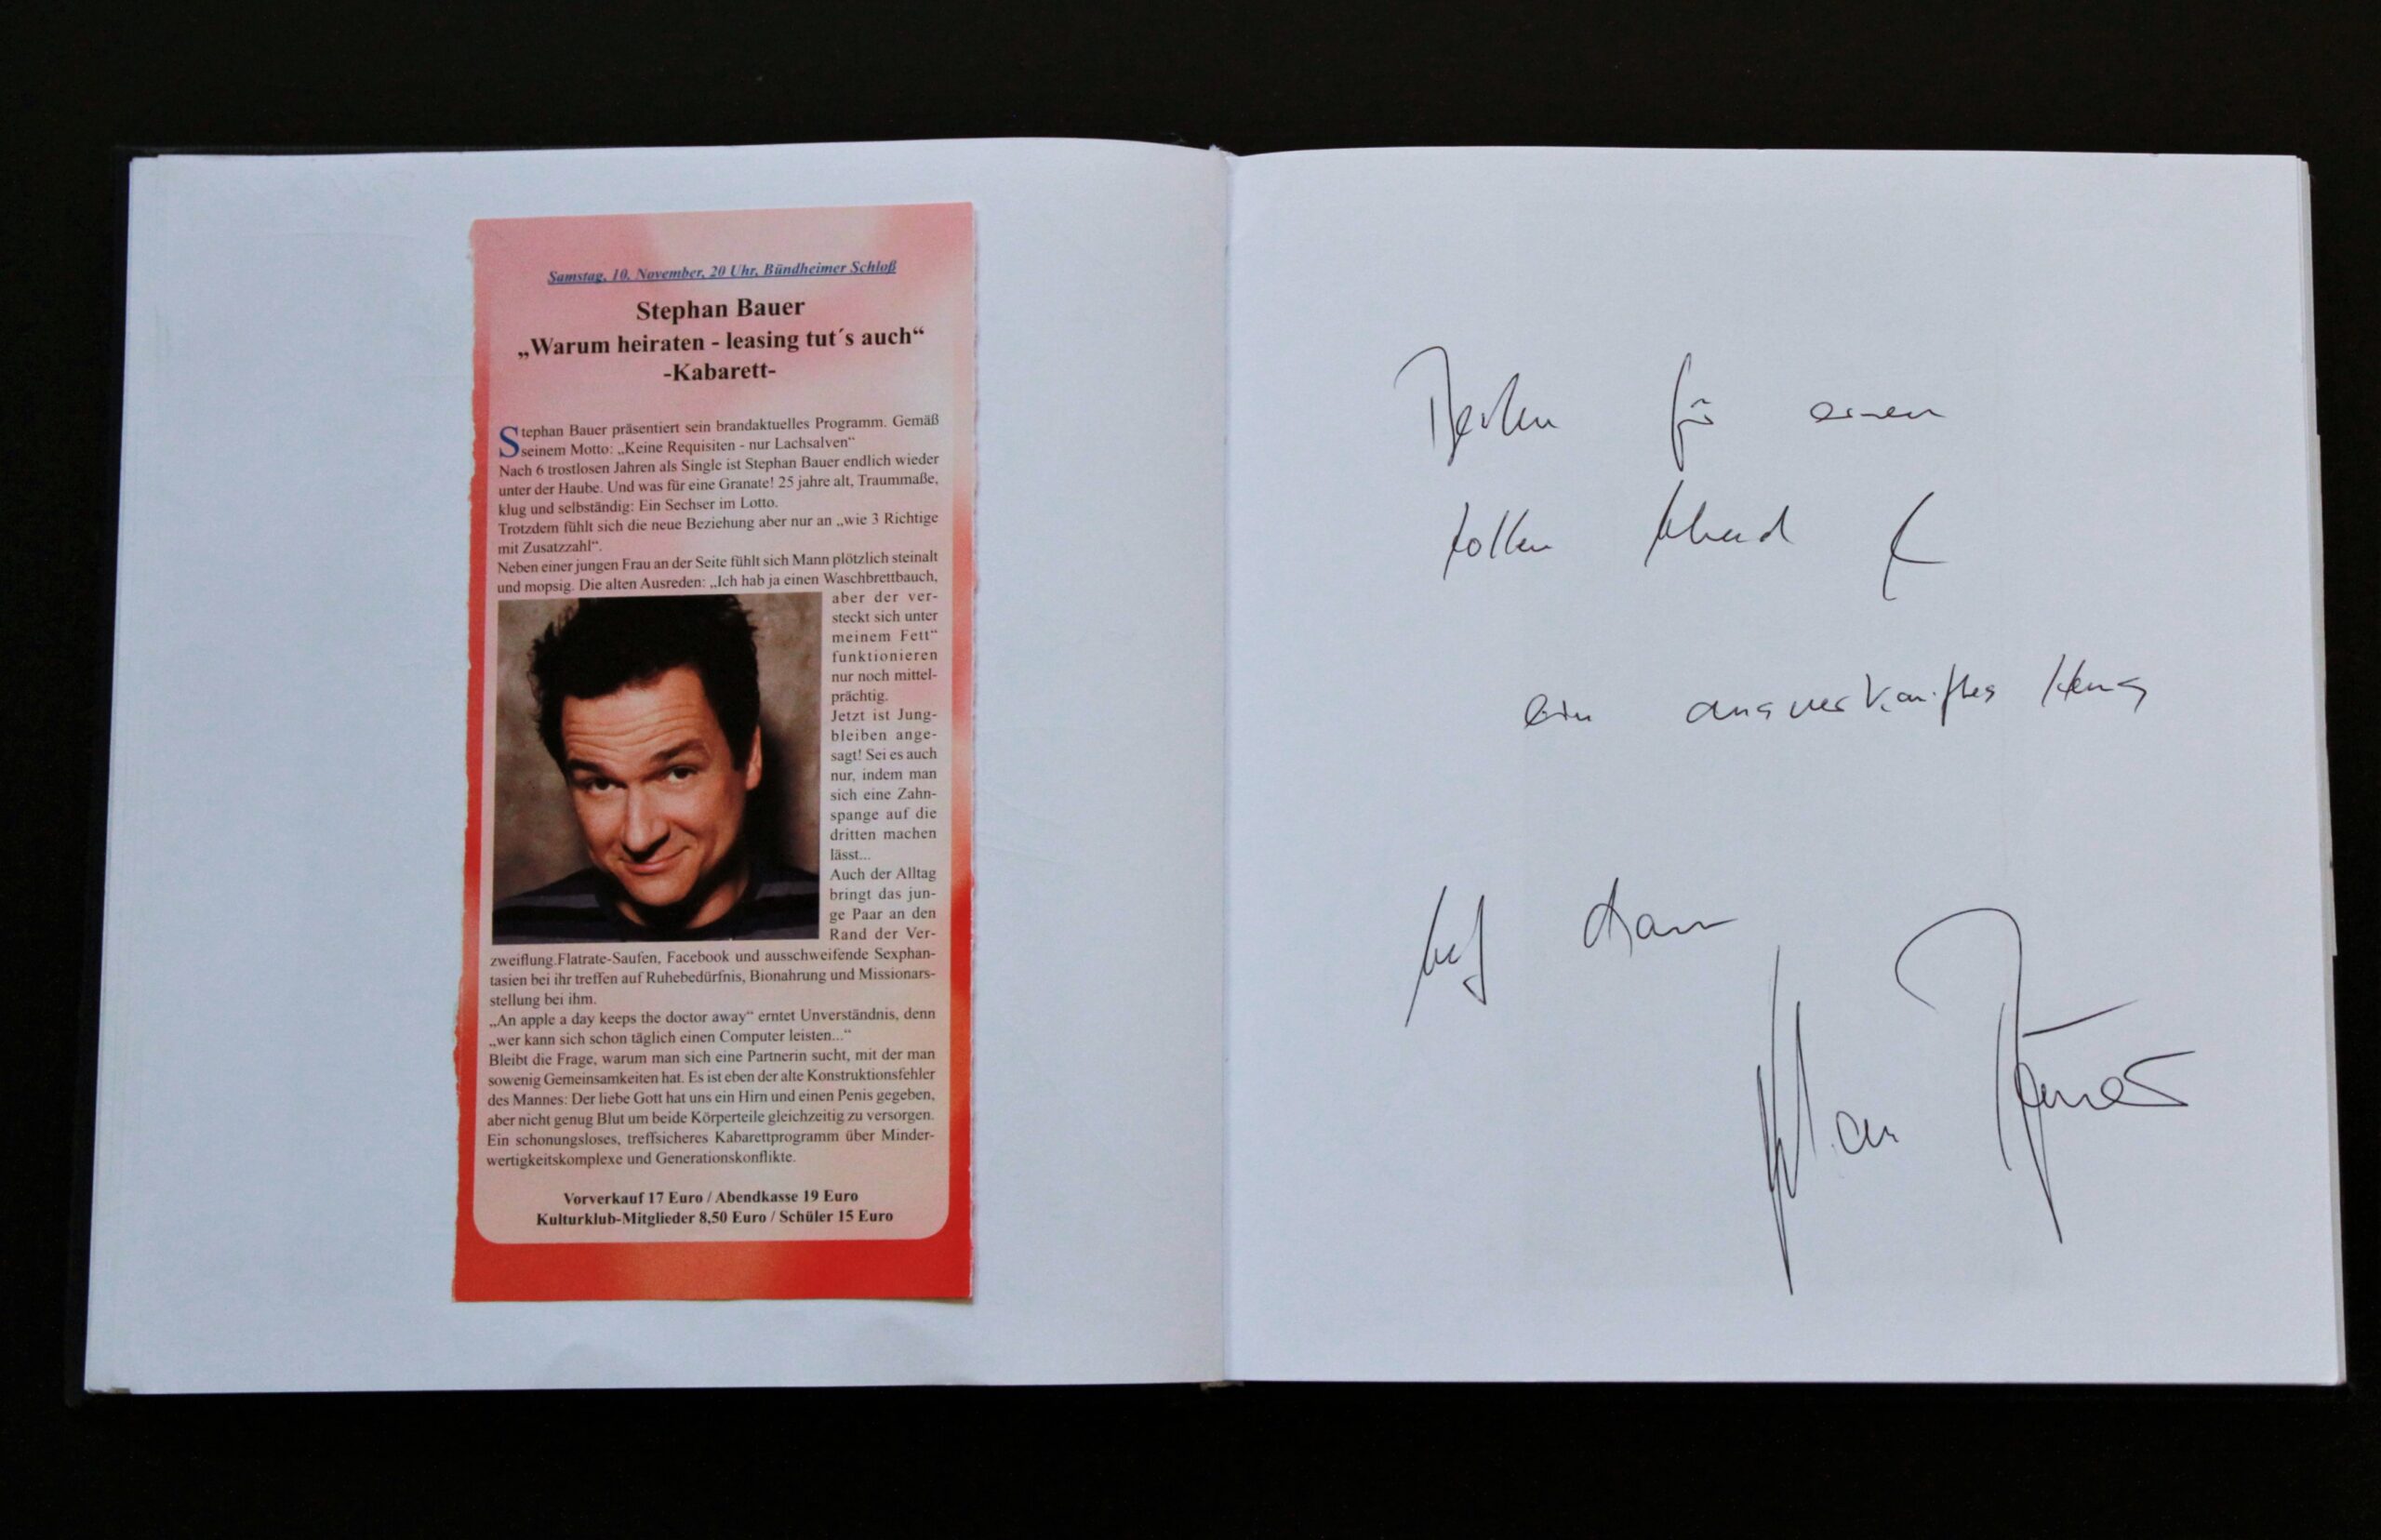 Samstag, 10. November, 20 Uhr, Bündheimer Schloß
Stephan Bauer
„Warum heiraten - leasing tut´s auch“
-Kabarett-
Stephan Bauer präsentiert sein brandaktuelles Programm. Gemäß
seinem Motto: „Keine Requisiten - nur Lachsalven“
Nach 6 trostlosen Jahren als Single ist Stephan Bauer endlich wieder
unter der Haube. Und was für eine Granate! 25 jahre alt, Traummaße,
klug und selbständig: Ein Sechser im Lotto.
Trotzdem fühlt sich die neue Beziehung aber nur an „wie 3 Richtige
mit Zusatzzahl“.
Neben einer jungen Frau an der Seite fühlt sich Mann plötzlich steinalt
und mopsig. Die alten Ausreden: „Ich hab ja einen Waschbrettbauch,
aber der ver-
steckt sich unter
meinem Fett“
funktionieren
nur noch mittel-
prächtig.
Jetzt ist Jung-
bleiben ange-
sagt! Sei es auch
nur, indem man
sich eine Zahn-
spange auf die
dritten machen
lässt...
Auch der Alltag
bringt das jun-
ge Paar an den
Rand der Ver-
zweiflung.Flatrate-Saufen, Facebook und ausschweifende Sexphan-
tasien bei ihr treffen auf Ruhebedürfnis, Bionahrung und Missionars-
stellung bei ihm.
„An apple a day keeps the doctor away“ erntet Unverständnis, denn
„wer kann sich schon täglich einen Computer leisten...“
Bleibt die Frage, warum man sich eine Partnerin sucht, mit der man
sowenig Gemeinsamkeiten hat. Es ist eben der alte Konstruktionsfehler
des Mannes: Der liebe Gott hat uns ein Hirn und einen Penis gegeben,
aber nicht genug Blut um beide Körperteile gleichzeitig zu versorgen.
Ein schonungsloses, treffsicheres Kabarettprogramm über Minder-
wertigkeitskomplexe und Generationskonflikte.
Vorverkauf 17 Euro / Abendkasse 19 Euro
Kulturklub-Mitglieder 8,50 Euro / Schüler 15 Euro
für einen
tollen Abend &
ein ausverkauftes Haus
Stephan Bauer